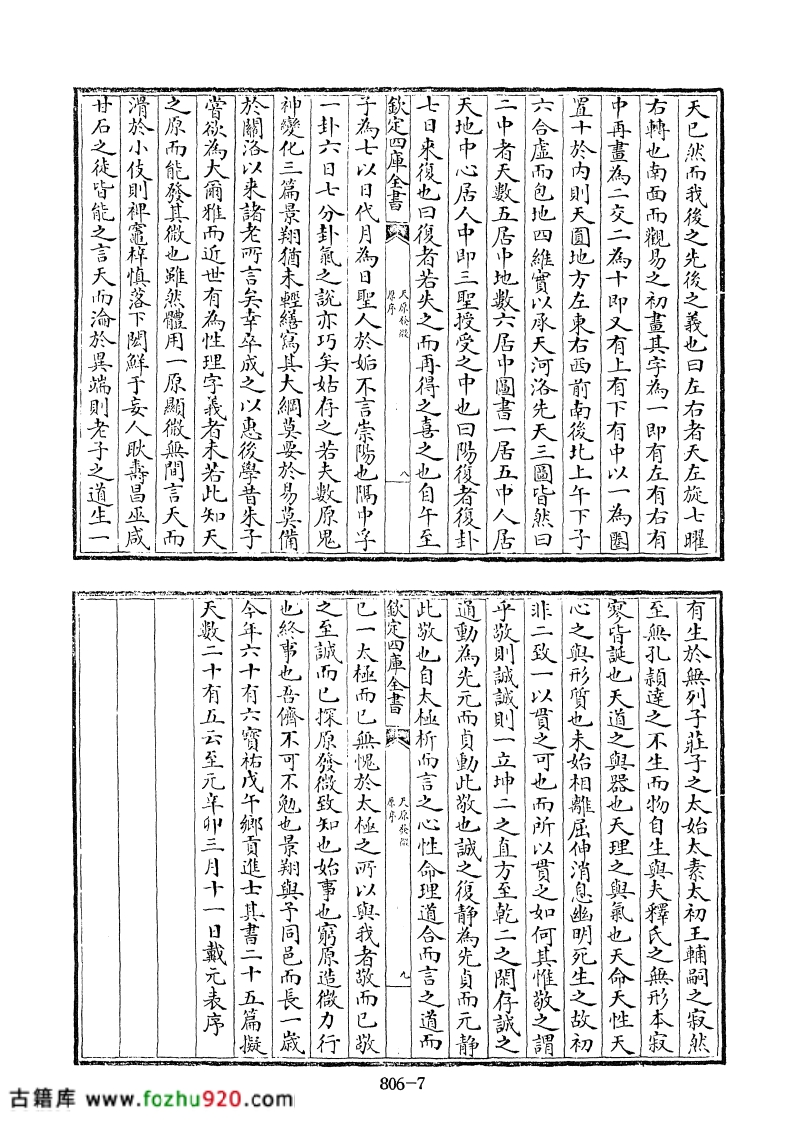 天已然而我後之先後之義也曰左右者天左旋七曜
右轉也南面而觀易之初畫其字為一即有左有右有
中再畫為二交二為十即又有上有下有中以一為圏
置十於内則天圓地方左東右西前南後北上午下子
六合虛而包地四維實以承天河洛先天三圖皆然曰
二中者天數五居中地數六居中圖書一居五中人居
天地中心居人中即三聖授受之中也曰陽復者復卦
七日來復也曰復者若失之而再得之喜之也自午至
欽定四庫全書
天原發微
原序
八
子為七以日代月為日聖人於姤不言崇陽也隔中孚
一卦六日七分卦氣之說亦巧矣姑存之若夫數原鬼
神變化三篇景翔猶未輕繕寫其大綱莫要於易莫備
於關洛以來諸老所言矣幸卒成之以惠後學昔朱子
嘗欲為大爾雅而近世有為性理字義者未若此知天
之原而能發其微也雖然體用一原顯微無間言天而
滑於小伎則裨竈梓慎落下閎鮮于妄人耿壽昌巫咸
甘石之徒皆能之言天而淪於異端則老子之道生一
有生於無列子莊子之太始太素太初王輔嗣之寂然
至無孔頴達之不生而物自生與夫釋氏之無形本寂
寥皆誕也天道之與器也天理之與氣也天命天性天
心之與形質也未始相離屈伸消息幽明死生之故初
非二致一以貫之可也而所以貫之如何其惟敬之謂
乎敬則誠誠則一立坤二之直方至乾二之閑存誠之
通動為先元而貞動此敬也誠之復靜為先貞而元靜
此敬也自太極析而言之心性命理道合而言之道而
欽定四庫全書
天原發微
原序
九
已一太極而已無愧於太極之所以與我者敬而已敬
之至誠而已探原發微致知也始事也窮原造微力行
也終事也吾儕不可不勉也景翔與予同邑而長一歲
今年六十有六寶祐戊午鄉貢進士其書二十五篇擬
天數二十有五云至元辛卯三月十一日戴元表序
806-7
古籍库 www.fozhu920.com